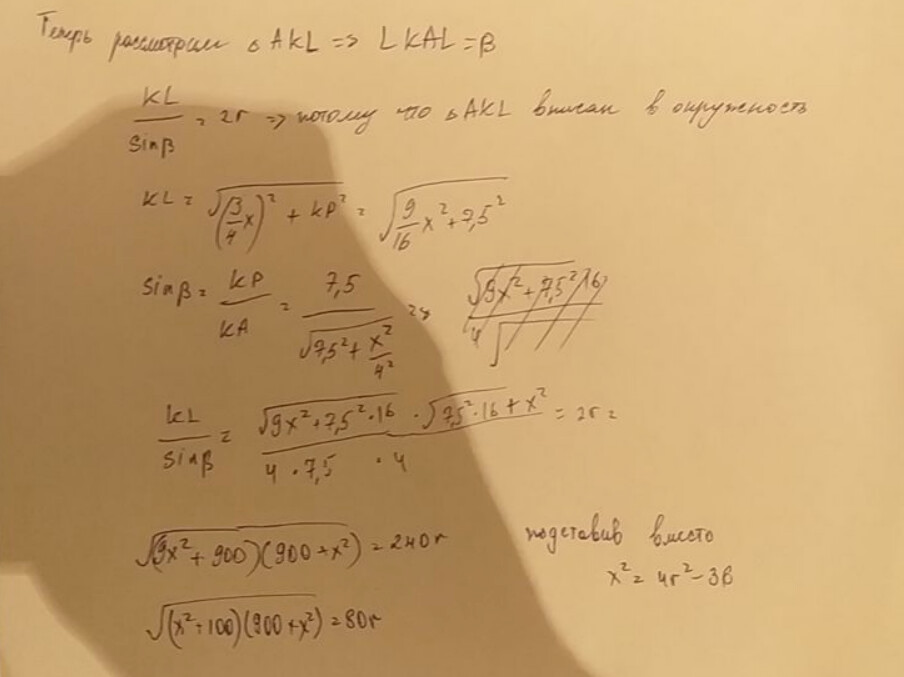 Теперь рассмотрим △ AKL => ∠KAL = β
KL / sinβ = 2r => потому что △AKL вписан в окружность
KL = √((3/4 x)² + KP²) = √(9/16 x² + 7,5²)
sinβ = KP / KA = 7,5 / √(7,5² + x²/4²) => √(9x² + 7,5² 16) / 4√
KL / sinβ = √(9x² + 7,5² · 16) · √(7,5² · 16 + x²) / 4 · 7,5 · 4 = 2r =
√((9x² + 900)(900 + x²)) = 240r подставив вместо
x² = 4r² - 36
√((x² + 100)(900 + x²)) = 80r